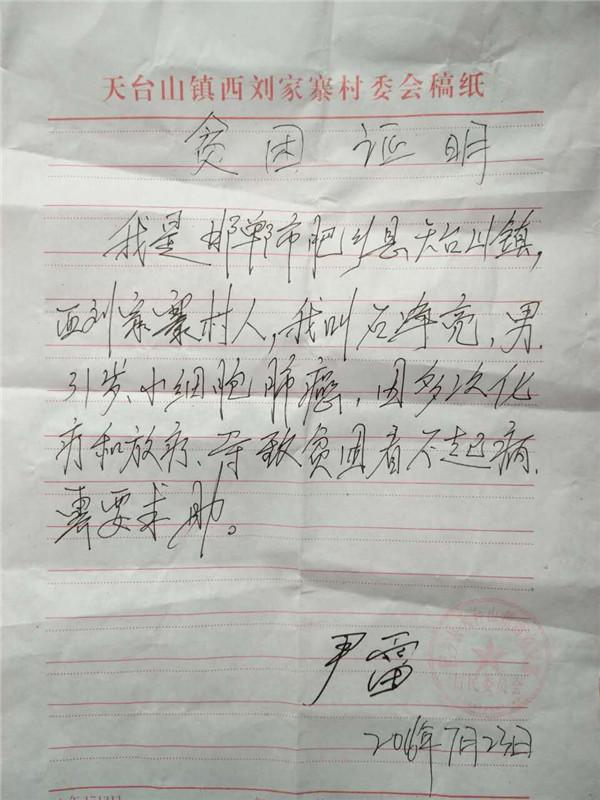 天台山镇西刘家寨村委会稿纸
贫困证明
我是邯郸市肥乡县天台山镇,
西刘家寨村人,我叫石海亮,男.
31岁、小细胞肺癌,因多次化
疗和放疗、导致贫困看不起病.
需要求助。
尹雷
2016年7月23日